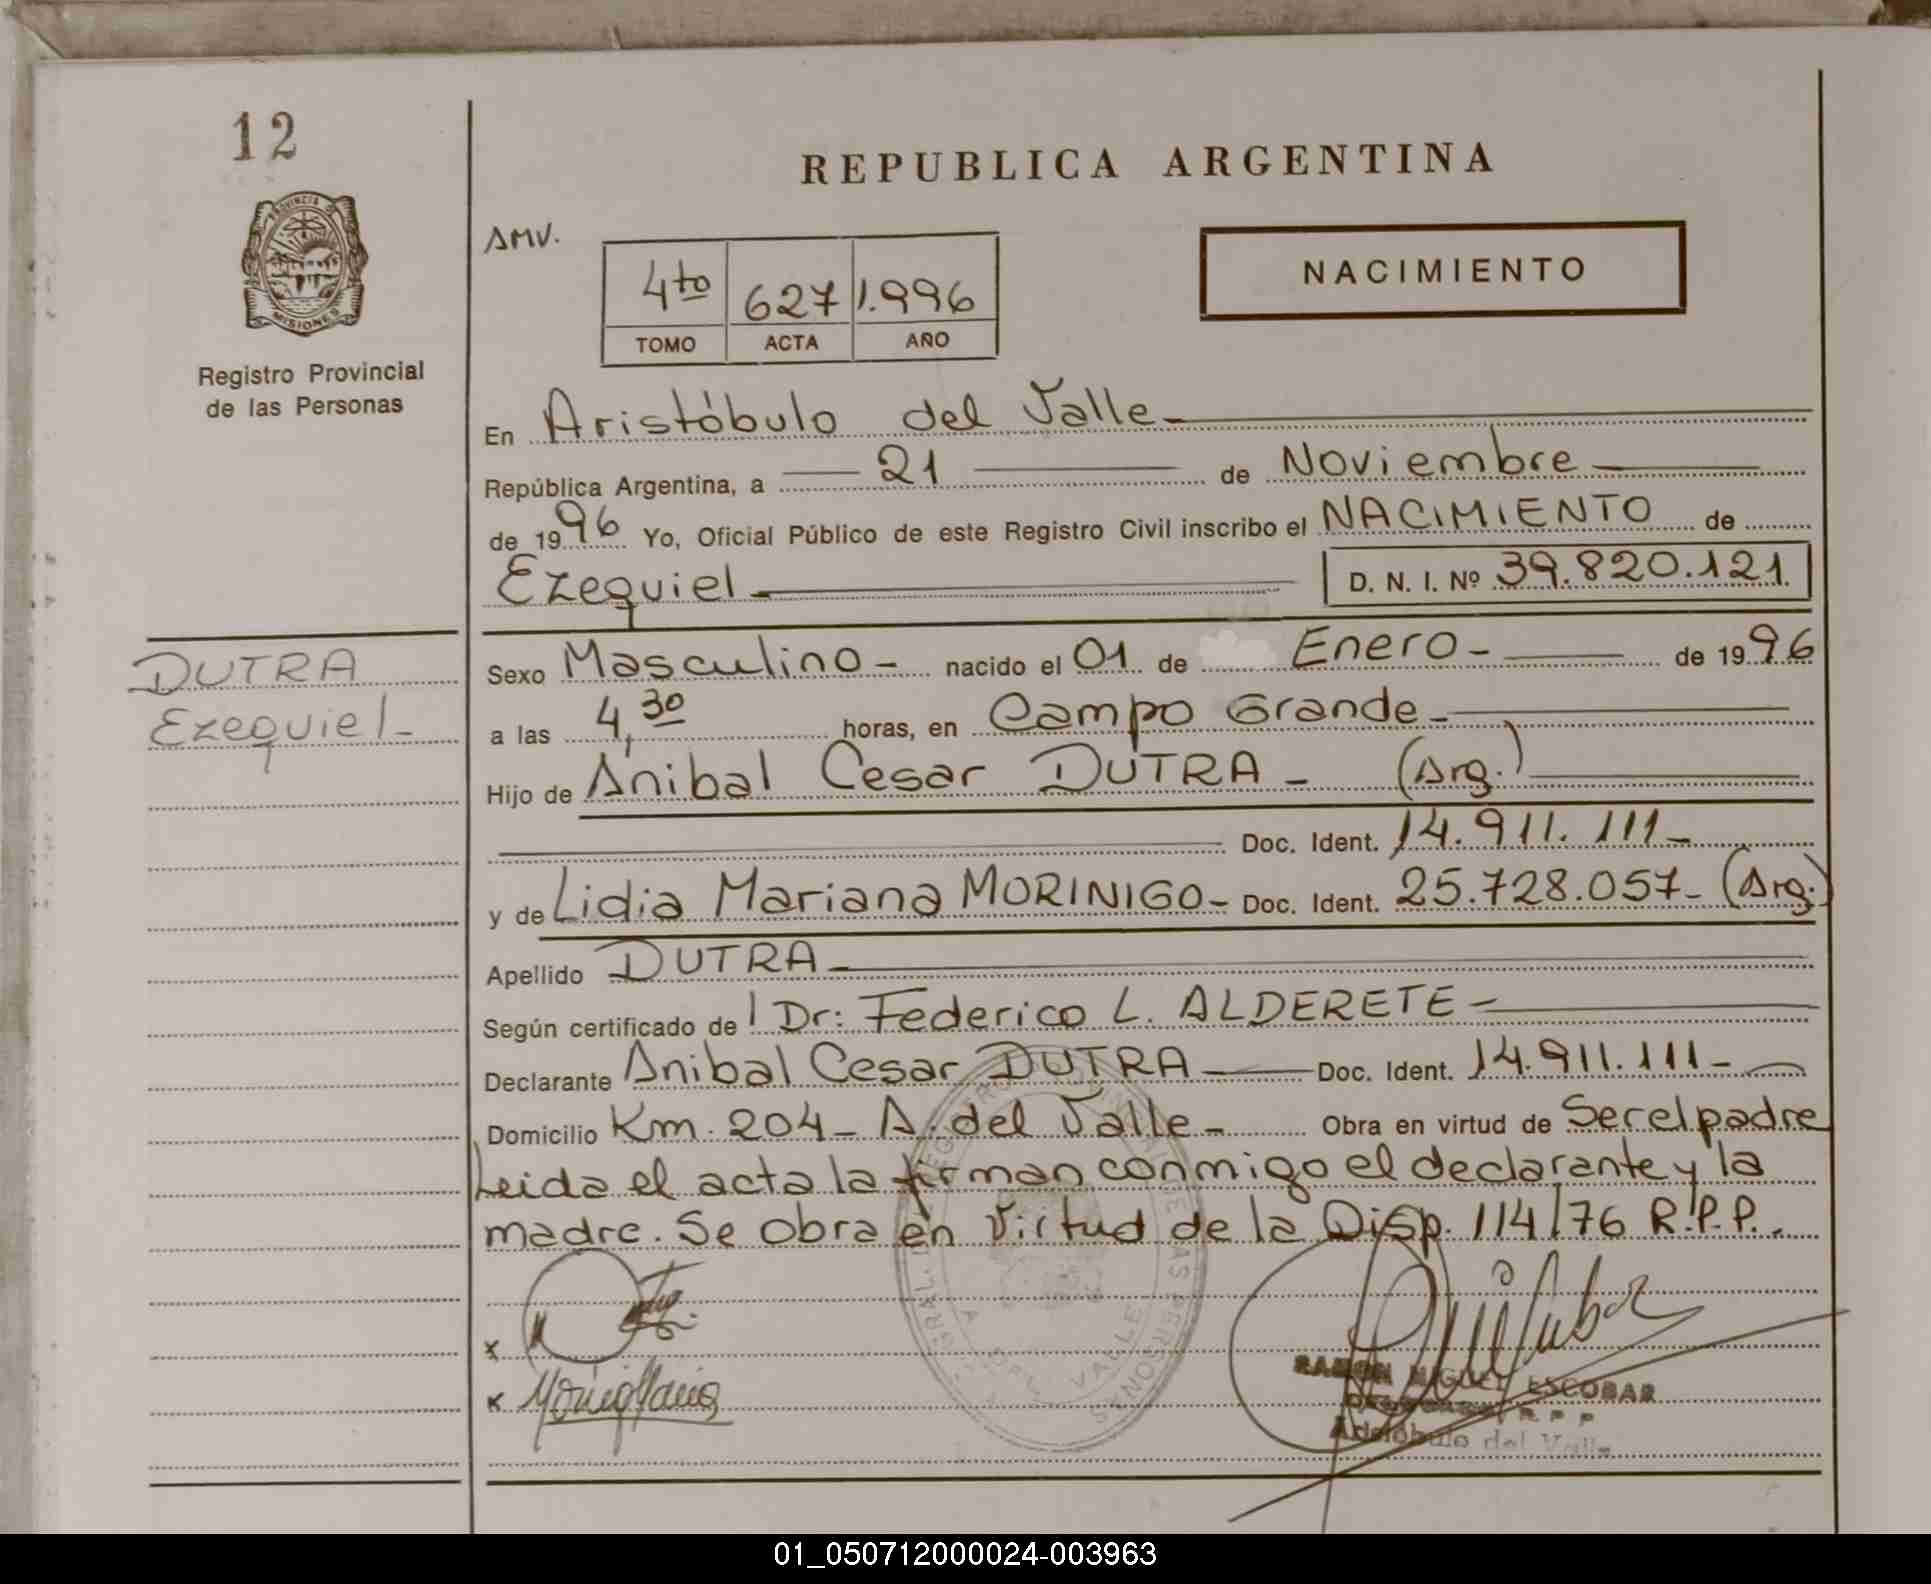 12
REPUBLICA ARGENTINA
PROVINCIA DE
MISIONES
Registro Provincial
de las Personas
AMV.
4to 627 1.996
TOMO ACTA AÑO
NACIMIENTO
En Aristóbulo del Valle
República Argentina, a 21 de Noviembre
de 1996 Yo, Oficial Público de este Registro Civil inscribo el NACIMIENTO de
Ezequiel D. N. I. Nº 39.820.121
DUTRA
Ezequiel
Sexo Masculino nacido el 01 de Enero de 1996
a las 4,30 horas, en Campo Grande
Hijo de Anibal Cesar DUTRA (Arg.)
Doc. Ident. 14.911.111
y de Lidia Mariana MORINIGO Doc. Ident. 25.728.057 (Arg.)
Apellido DUTRA
Según certificado de l Dr: Federico L. ALDERETE
Declarante Anibal Cesar DUTRA Doc. Ident. 14.911.111
Domicilio Km. 204 - A. del Valle Obra en virtud de Ser el padre
Leida el acta la firman conmigo el declarante y la
madre. Se obra en Virtud de la Disp. 114/76 R.P.P.
RAMON MIGUEL ESCOBAR
R P P
Aristóbulo del Valle
01_050712000024-003963